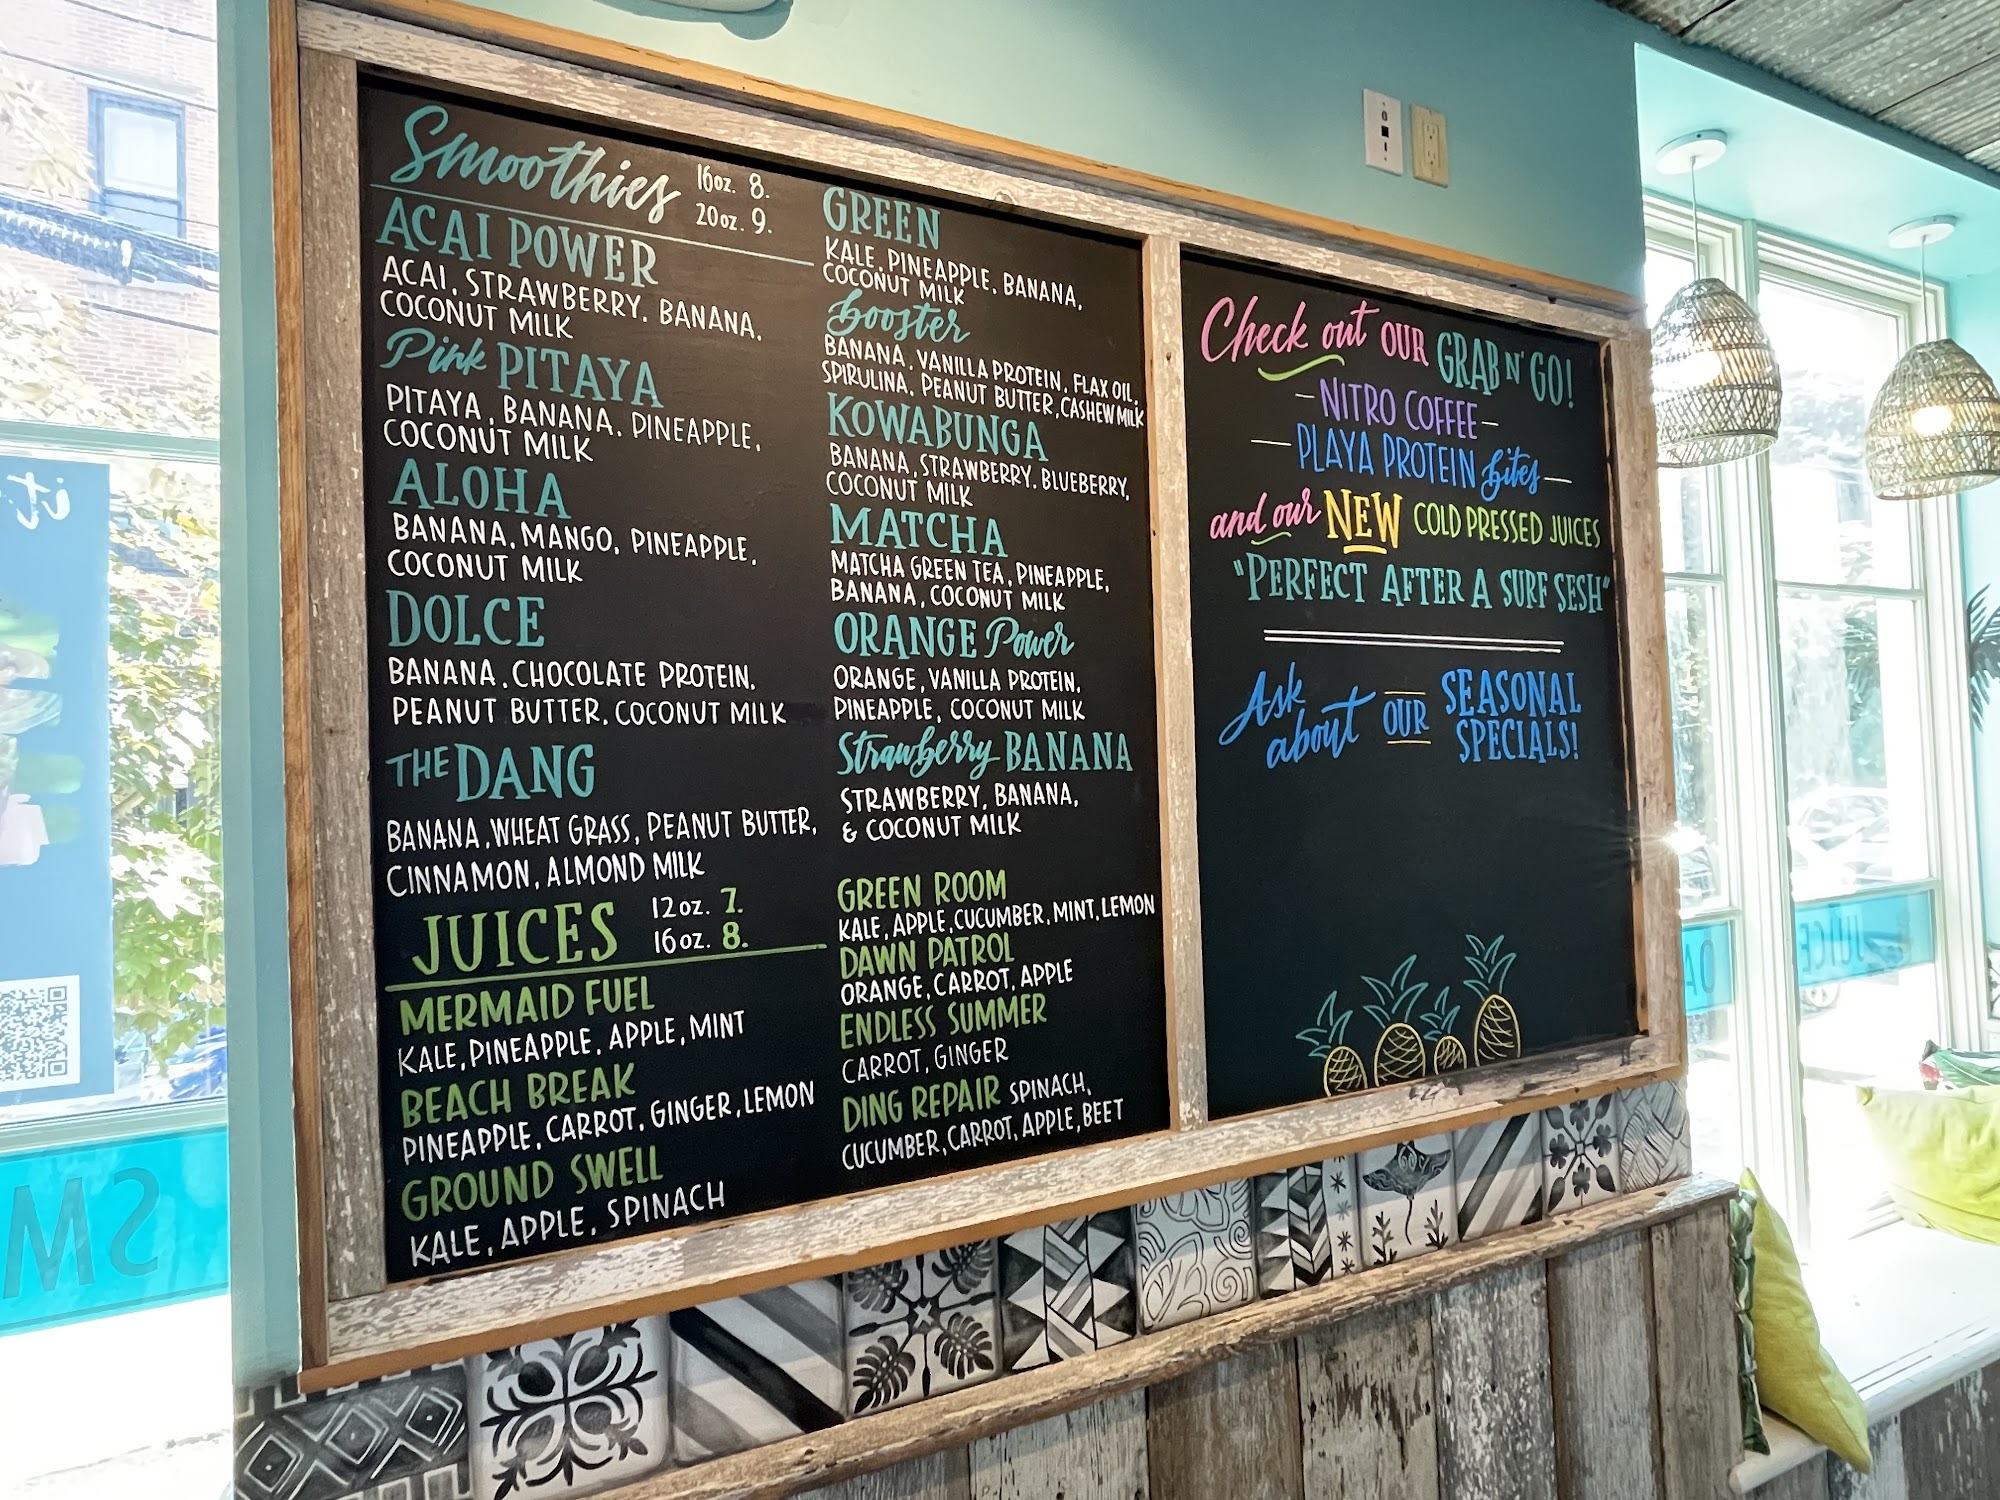 Smoothies 16oz. 8.
20oz. 9.
ACAI POWER
ACAI, STRAWBERRY, BANANA,
COCONUT MILK
Pink PITAYA
PITAYA, BANANA, PINEAPPLE,
COCONUT MILK
ALOHA
BANANA, MANGO, PINEAPPLE,
COCONUT MILK
DOLCE
BANANA, CHOCOLATE PROTEIN,
PEANUT BUTTER, COCONUT MILK
THE DANG
BANANA, WHEAT GRASS, PEANUT BUTTER,
CINNAMON, ALMOND MILK
GREEN
KALE, PINEAPPLE, BANANA,
COCONUT MILK
booster
BANANA, VANILLA PROTEIN, FLAX OIL,
SPIRULINA, PEANUT BUTTER, CASHEW MILK
KOWABUNGA
BANANA, STRAWBERRY, BLUEBERRY,
COCONUT MILK
MATCHA
MATCHA GREEN TEA, PINEAPPLE,
BANANA, COCONUT MILK
ORANGE Power
ORANGE, VANILLA PROTEIN,
PINEAPPLE, COCONUT MILK
Strawberry BANANA
STRAWBERRY, BANANA,
& COCONUT MILK
JUICES 12oz. 7.
16oz. 8.
MERMAID FUEL
KALE, PINEAPPLE, APPLE, MINT
BEACH BREAK
PINEAPPLE, CARROT, GINGER, LEMON
GROUND SWELL
KALE, APPLE, SPINACH
GREEN ROOM
KALE, APPLE, CUCUMBER, MINT, LEMON
DAWN PATROL
ORANGE, CARROT, APPLE
ENDLESS SUMMER
CARROT, GINGER
DING REPAIR SPINACH,
CUCUMBER, CARROT, APPLE, BEET
Check out OUR GRAB N' GO!
- NITRO COFFEE -
- PLAYA PROTEIN bites -
and our NEW COLD PRESSED JUICES
"PERFECT AFTER A SURF SESH"
Ask about OUR SEASONAL
SPECIALS!
it
SM
JUICE